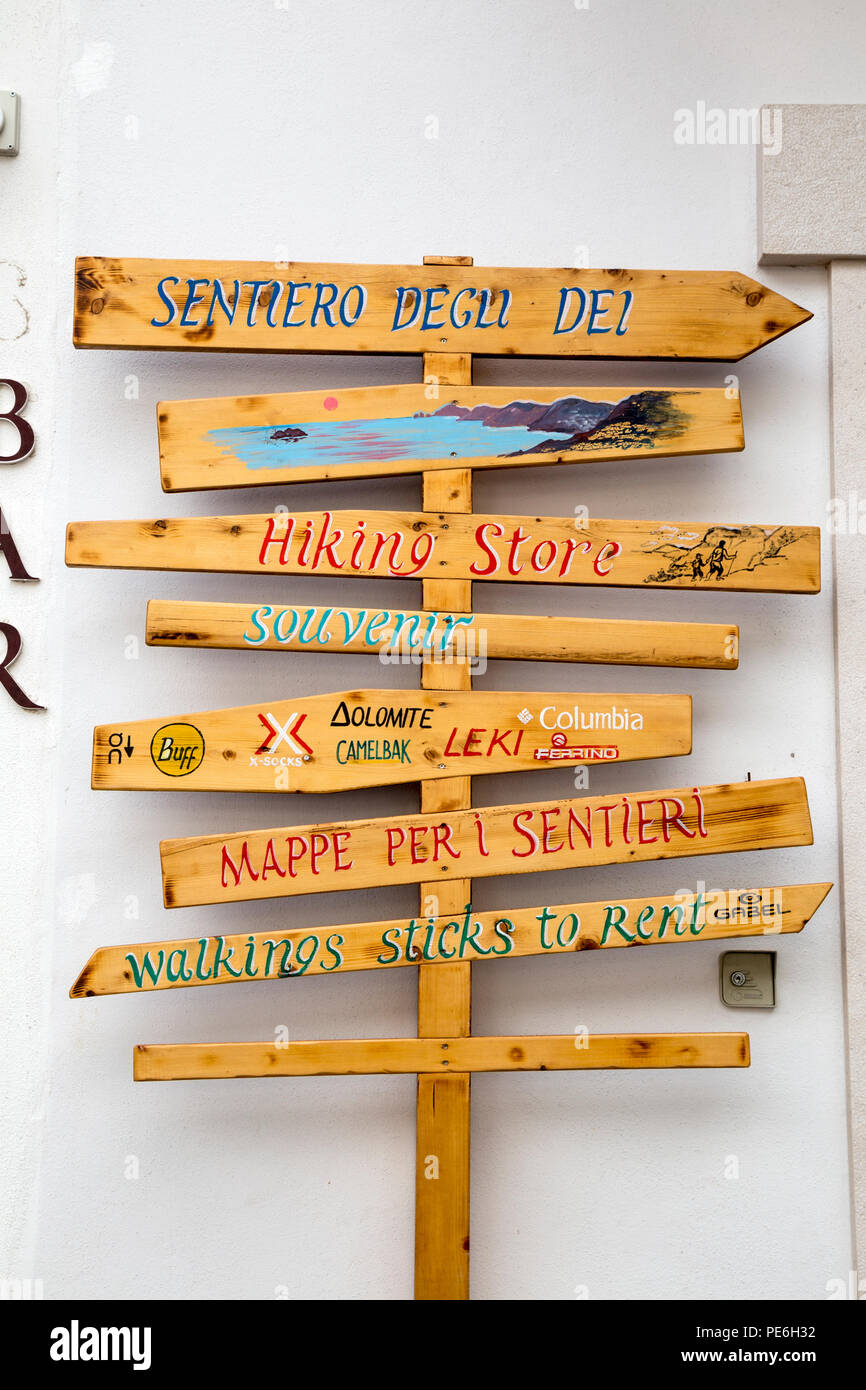 SENTIERO DEGLI DEI
Hiking Store
souvenir
Buff
X-SOCKS
DOLOMITE
CAMELBAK
LEKI
Columbia
FERRINO
MAPPE PER I SENTIERI
walkings sticks to Rent
GABEL
BAR
alamy
a
Image ID: PE6H32
www.alamy.com